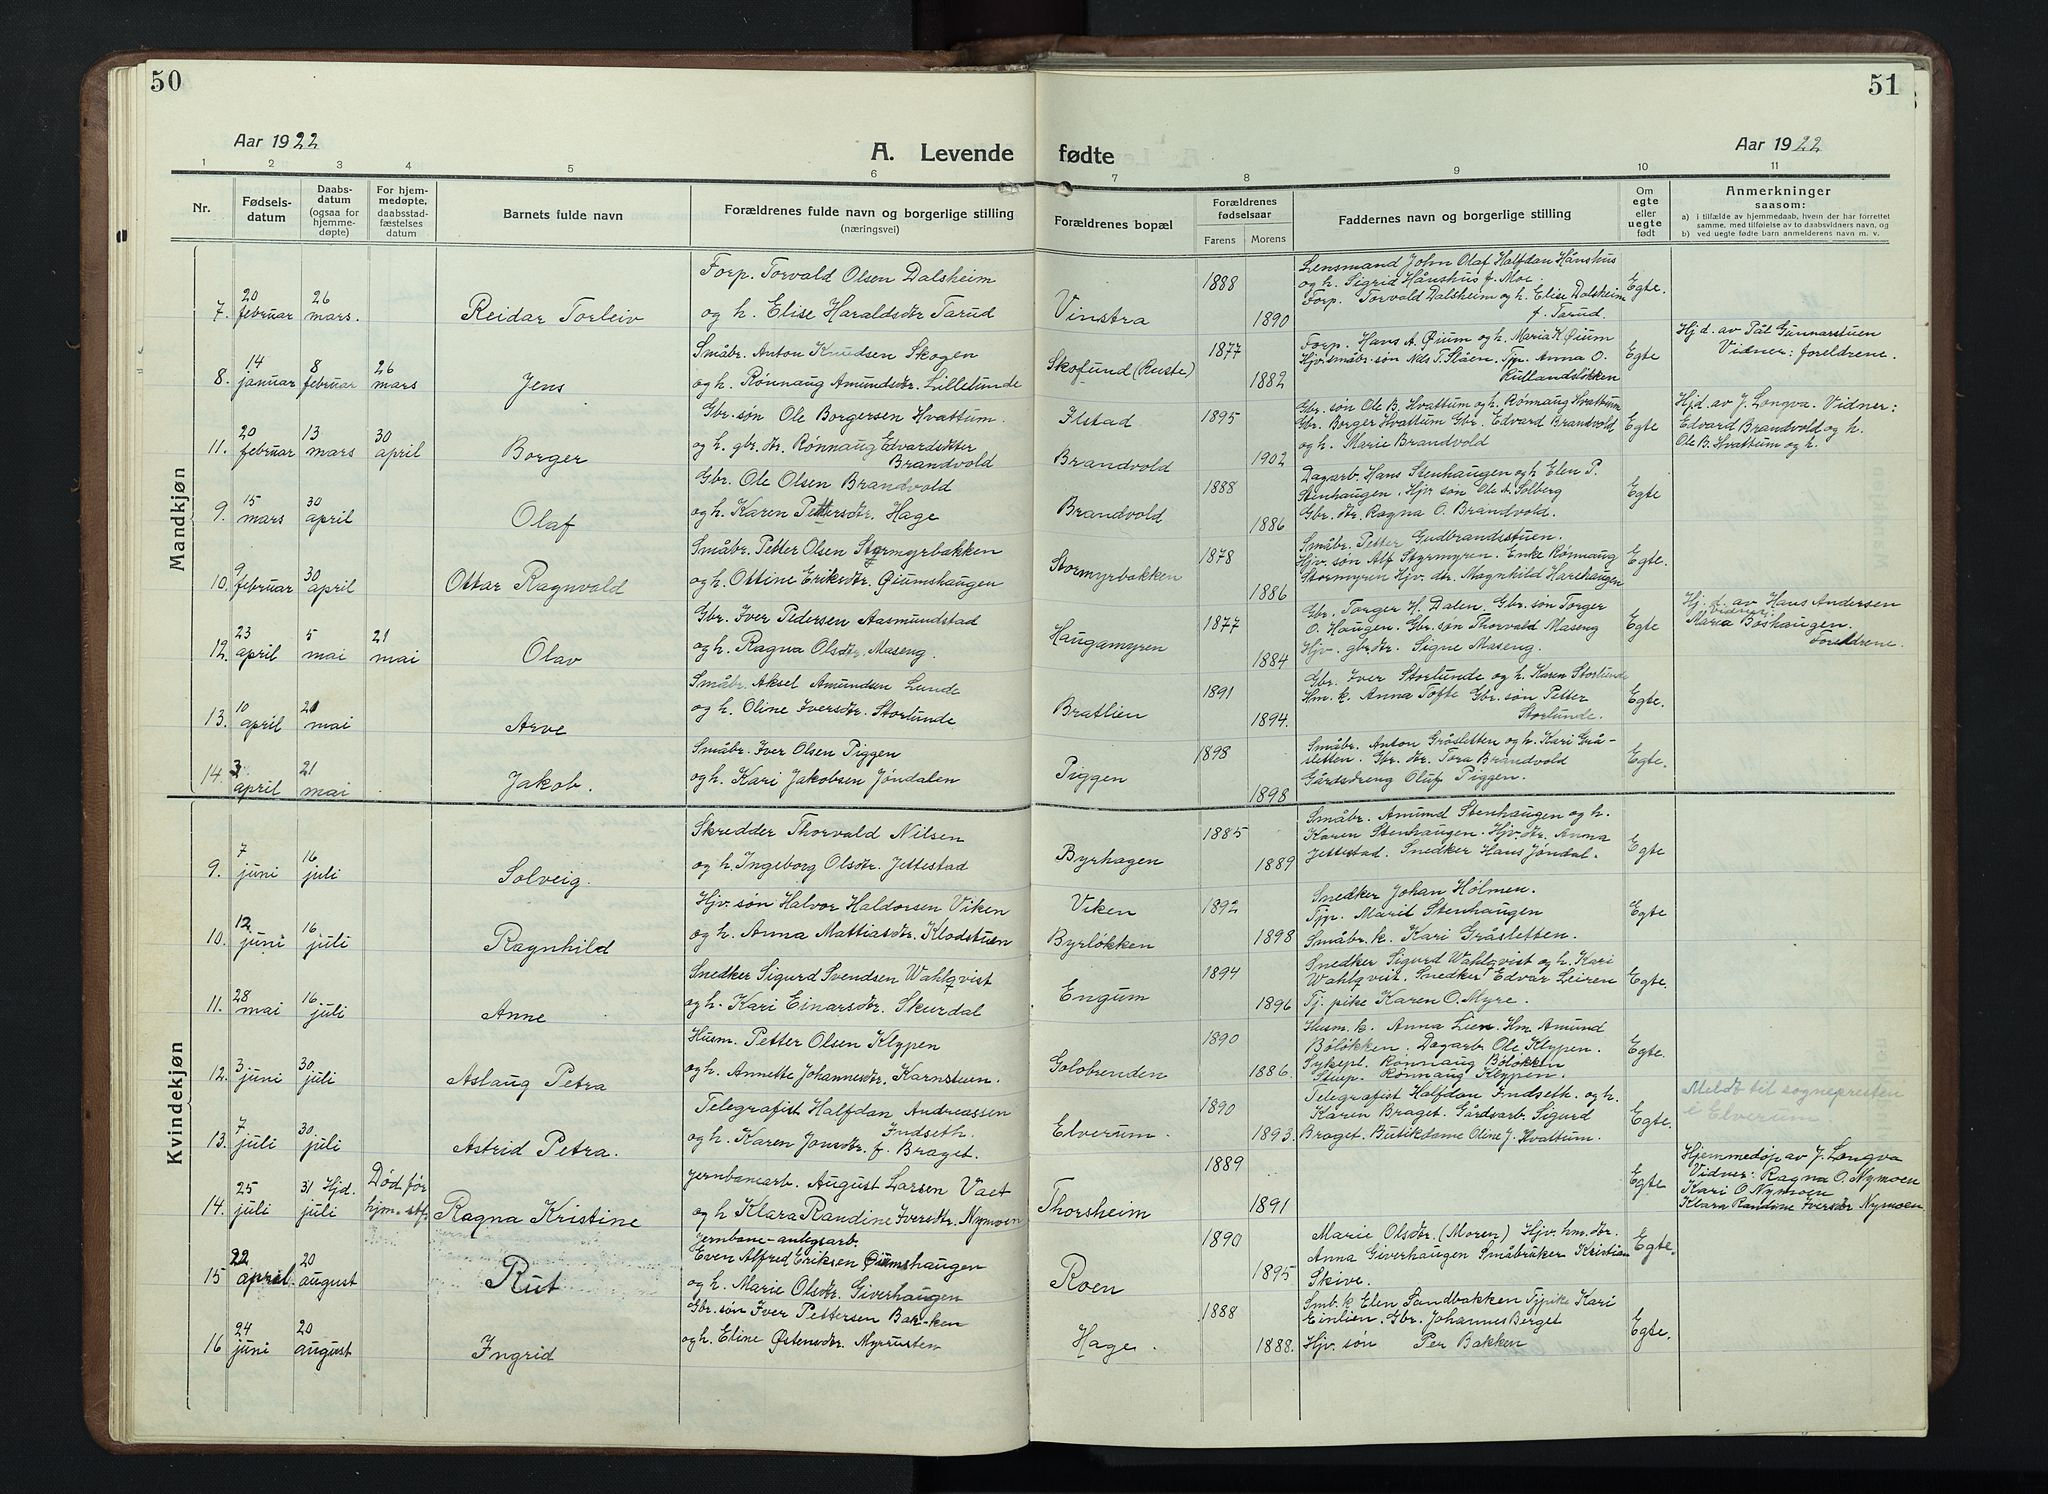 50
51
Aar 1922
A. Levende fødte
Aar 1922
1 2 3 4 5 6 7 8 9 10 11
Nr.
Fødselsdatum
Daabsdatum (ogsaa for hjemmedøpte)
For hjemmedøpte, daabsstadfæstelses datum
Barnets fulde navn
Forældrenes fulde navn og borgerlige stilling (næringsvei)
Forældrenes bopæl
Forældrenes fødselsaar
Farens Morens
Faddernes navn og borgerlige stilling
Om egte eller uegte født
Anmerkninger saasom:
a) i tilfælde av hjemmedaab, hvem der har forrettet samme, med tilføielse av to daabsvidners navn, og
b) ved uegte fødte barn anmelderens navn m. v.
Mandkjøn
7. 20 februar 26 mars. Reidar Torleiv
Forp. Torvald Olsen Dalsheim
og h. Elise Haraldsdtr Tarud
Vinstra 1888 1890
Lensmand John Olaf Halfdan Hånshus
og h. Sigrid Hånshus f. Moe.
Forp. Torvald Dalsheim og h. Elise Dalsheim
f. Tarud
Egte.
8. 14 januar 8 februar 26 mars Jens
Småbr. Anton Knudsen Skogen
og h. Rønnaug Amundsdtr. Lillelunde
Skofund (Ruste) 1877 1882
Forp. Hans A. Øium og h. Maria K Øium
Hjv. småbr. søn Nels T. Slåen. Tjp. Anna O.
Rullandsløkken
Egte
Hj d. av Pål Gunnarstuen
Vidner: foreldrene.
11. 20 februar 13 mars 30 april Borger
Gbr. søn Ole Borgersen Hvattum.
og h. gbr. dtr. Rønnaug Edvardsdtter
Brandvold
Ilstad
Brandvold 1895 1902
Gbr. søn Ole B. Hvattum og h. Rønnaug Hvattum
Gbr. Borger Hvattum Gbr. Edvard Brandvold
og h. Marie Brandvold
Egte
Hjd. av J. Longva. Vidner:
Edvard Brandvold og h.
Ole B. Hvattum og h.
9. 15 mars 30 april Olaf
Gbr. Ole Olsen Brandvold
og h. Karen Pettersdtr. Hage
Brandvold 1888 1886
Dagarb. Hans Stenhaugen og h Elen P.
Stenhaugen. Hjv søn Ole A. Solberg
Gbr. dtr. Ragna O. Brandvold.
Egte
10. 9 februar 30 april Ottar Ragnvald
Småbr. Petter Olsen Stormyrbakken
og h. Ottine Eriksdtr. Øiumshaugen
Stormyrbakken 1878 1886
Småbr. Petter Gudbrandsstuen.
Hjv. søn Alf Styrmyren. Enke Rønnaug
Stormyren Hjv. dtr. Magnhild Harehaugen
Egte.
12. 23 april 5 mai 21 mai Olav
Gbr. Iver Pedersen Aasmundstad
og h. Ragna Olsdtr. Maseng.
Haugamyren 1877 1884
Gbr. Torger H. Dalen. Gbr. søn Torger
O. Haugen. Gbr. søn Thorvald Maseng
Hjv. gbr dtr. Signe Maseng.
Egte
Hj. d. av Hans Andersen
Vidner:
Maria Boshaugen.
Foreldrene.
13. 10 april 21 mai Arve
Småbr. Aksel Amundsen Lunde
og h. Oline Iversdtr. Storlunde
Bratlien 1891 1894.
Gbr. Iver Storlunde og h. Karen Storlunde
Hm. k. Anna Tofte Gbr. søn Petter
Storlunde.
Egte.
14. 3 april 21 mai Jakob.
Småbr. Iver Olsen Piggen
og h. Kari Jakobsen Jøndalen
Piggen 1898 1898
Småbr. Anton Gråsletten og h. Kari Grå-
sletten. Gbr. dtr. Tora Brandvold
Gårdsdreng Oluf Piggen.
Egte.
Kvindekjøn
9. 7 juni 16 juli Solveig.
Skredder Thorvald Nilsen
og h. Ingeborg Olsdtr. Jettestad
Byrhagen 1885 1889
Småbr. Amund Stenhaugen og h.
Karen Stenhaugen. Hjv. dtr. Anna
Jettestad. Snedker Hans Jøndal.
Egte
10. 12 juni 16 juli Ragnhild
Hjv. søn Halvor Haldorsen Viken
og h. Anna Mattiasdtr. Klodstuen
Viken
Byrløkken 1892 1898
Snedker Johan Holmen.
Tjp. Marit Stenhaugen
Småbr. k. Kari Gråsletten.
Egte
11. 28 mai 16 juli Anne
Snedker Sigurd Svendsen Wahlqvist
og h. Kari Einarsdtr. Skurdal
Engum 1894 1896
Snedker Sigurd Wahlqvist og h. Kari
Wahlqvist. Snedker Edvar Leiren
Tj. pike Karen O. Myre.
Egte.
12. 3 juni 30 juli Aslaug Petra
Husm. Petter Olsen Klypen
og h. Annette Johannesdtr. Karnstuen.
Golobrenden 1890 1886.
Husm. k. Anna Lien. Hm. Amund
Bøløkken. Dagarb. Ole Klypen.
Sykepl. Rønnaug Bøløkken
Rønnaug Klypen.
Egte.
13. 7 juli 30 juli Astrid Petra.
Telegrafist Halfdan Andreassen
Indseth.
og h. Karen Jonsdtr. f. Braget.
Elverum. 1890 1893.
Telegrafist Halfdan Indseth. og h.
Karen Braget. Gårdarb. Sigurd
Braget. Butikdame Oline J. Hvattum.
Egte.
Meldt til sognepresten
i Elverum
14. 25 juli 31 Hjd. juli Død før hjm. stf. Ragna Kristine
Jernbanearb. August Larsen Vaet
og h Klara Randine Iversdtr. Nymoen
Thorsheim 1889 1891
Egte
Hjemmedøp av J. Longva
Vidner: Ragna O. Nymoen
Kari O Nymoen
Klara Randine Iversdtr Nymoen
15 22 april. 20 august Rut
Jernbane-anlegsarb.
Even Alfred Eriksen Øiumshaugen
og h. Marie Olsdtr. Giverhaugen
Roen 1890 1895
Marie Olsdtr. (Moren) Hjv. hm. dtr.
Anna Giverhaugen Småbruker Kristian
Skive.
Egte.
16 24 juni 20 august Ingrid
Gbr. søn Iver Pettersen Bak-ken
og h. Eline Østensdtr. Myrusten
Hage. 1888 1888.
Smb. k Elen Sandbakken Tjpike Kari
Einlien. Gbr. Johannes Berget
Hjv. søn Per Bakken
Egte.